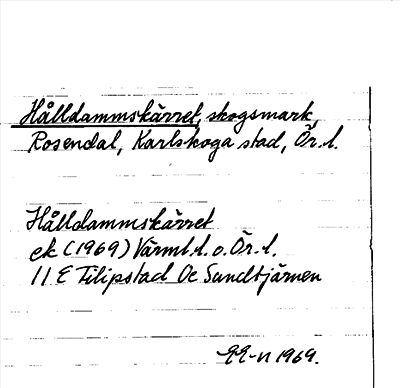 Hålldammskärret, skogsmark,
Rosendal, Karlskoga stad, Ör. l.
Hålldammskärret
ek (1969) Värml. l. o. Ör. l.
11 E Filipstad Oe Sundtjärnen
1969.